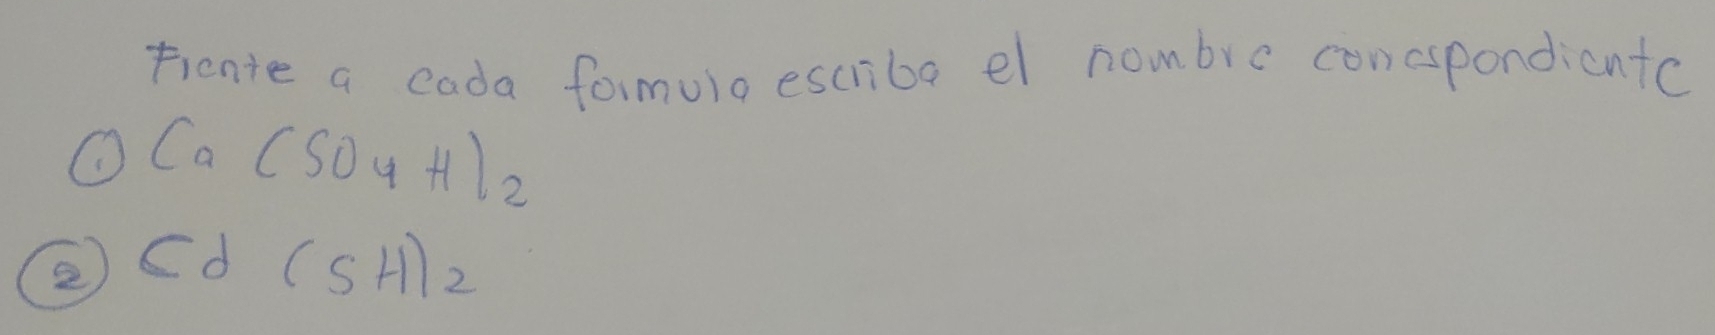 Frente a cada formula escriba el nombre correspondiente
① Ca (SO4H)2
② Cd (SH)2